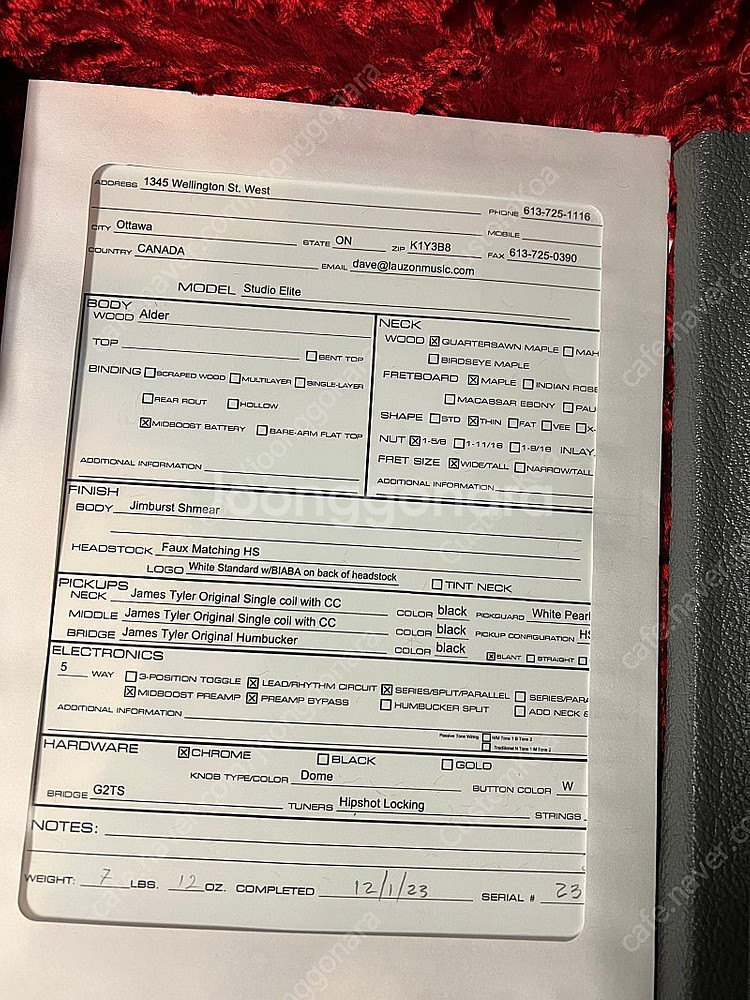 ADDRESS 1345 Wellington St. West
PHONE 613-725-1116
CITY Ottawa STATE ON ZIP K1Y3B8 MOBILE
COUNTRY CANADA EMAIL dave@lauzonmusic.com FAX 613-725-0390
MODEL Studio Elite
BODY
WOOD Alder
TOP BENT TOP
BINDING SCRAPED WOOD MULTILAYER SINGLE-LAYER
REAR ROUT HOLLOW
MIDBOOST BATTERY BARE-ARM FLAT TOP
ADDITIONAL INFORMATION
NECK
WOOD QUARTERSAWN MAPLE MAH
BIRDSEYE MAPLE
FRETBOARD MAPLE INDIAN ROSE
MACASSAR EBONY PAU
SHAPE STD THIN FAT VEE X-
NUT 1-5/8 1-11/16 1-9/16 INLAY
FRET SIZE WIDE/TALL NARROW/TALL
ADDITIONAL INFORMATION
FINISH
BODY Jimburst Shmear
HEADSTOCK Faux Matching HS
LOGO White Standard w/BIABA on back of headstock TINT NECK
PICKUPS
NECK James Tyler Original Single coil with CC COLOR black PICKGUARD White Pearl
MIDDLE James Tyler Original Single coil with CC COLOR black PICKUP CONFIGURATION HS
BRIDGE James Tyler Original Humbucker COLOR black SLANT STRAIGHT
ELECTRONICS
5 WAY 3-POSITION TOGGLE LEAD/RHYTHM CIRCUIT SERIES/SPLIT/PARALLEL SERIES/PARA
MIDBOOST PREAMP PREAMP BYPASS HUMBUCKER SPLIT ADD NECK &
ADDITIONAL INFORMATION
Passive Tone Wiring N/M Tone 1 B Tone 2
Traditional N Tone 1 M Tone 2
HARDWARE CHROME BLACK GOLD
KNOB TYPE/COLOR Dome BUTTON COLOR W
BRIDGE G2TS TUNERS Hipshot Locking STRINGS
NOTES:
WEIGHT: 7 LBS. 12 OZ. COMPLETED 12/1/23 SERIAL # 23
loonggonara
cafe.naver.com